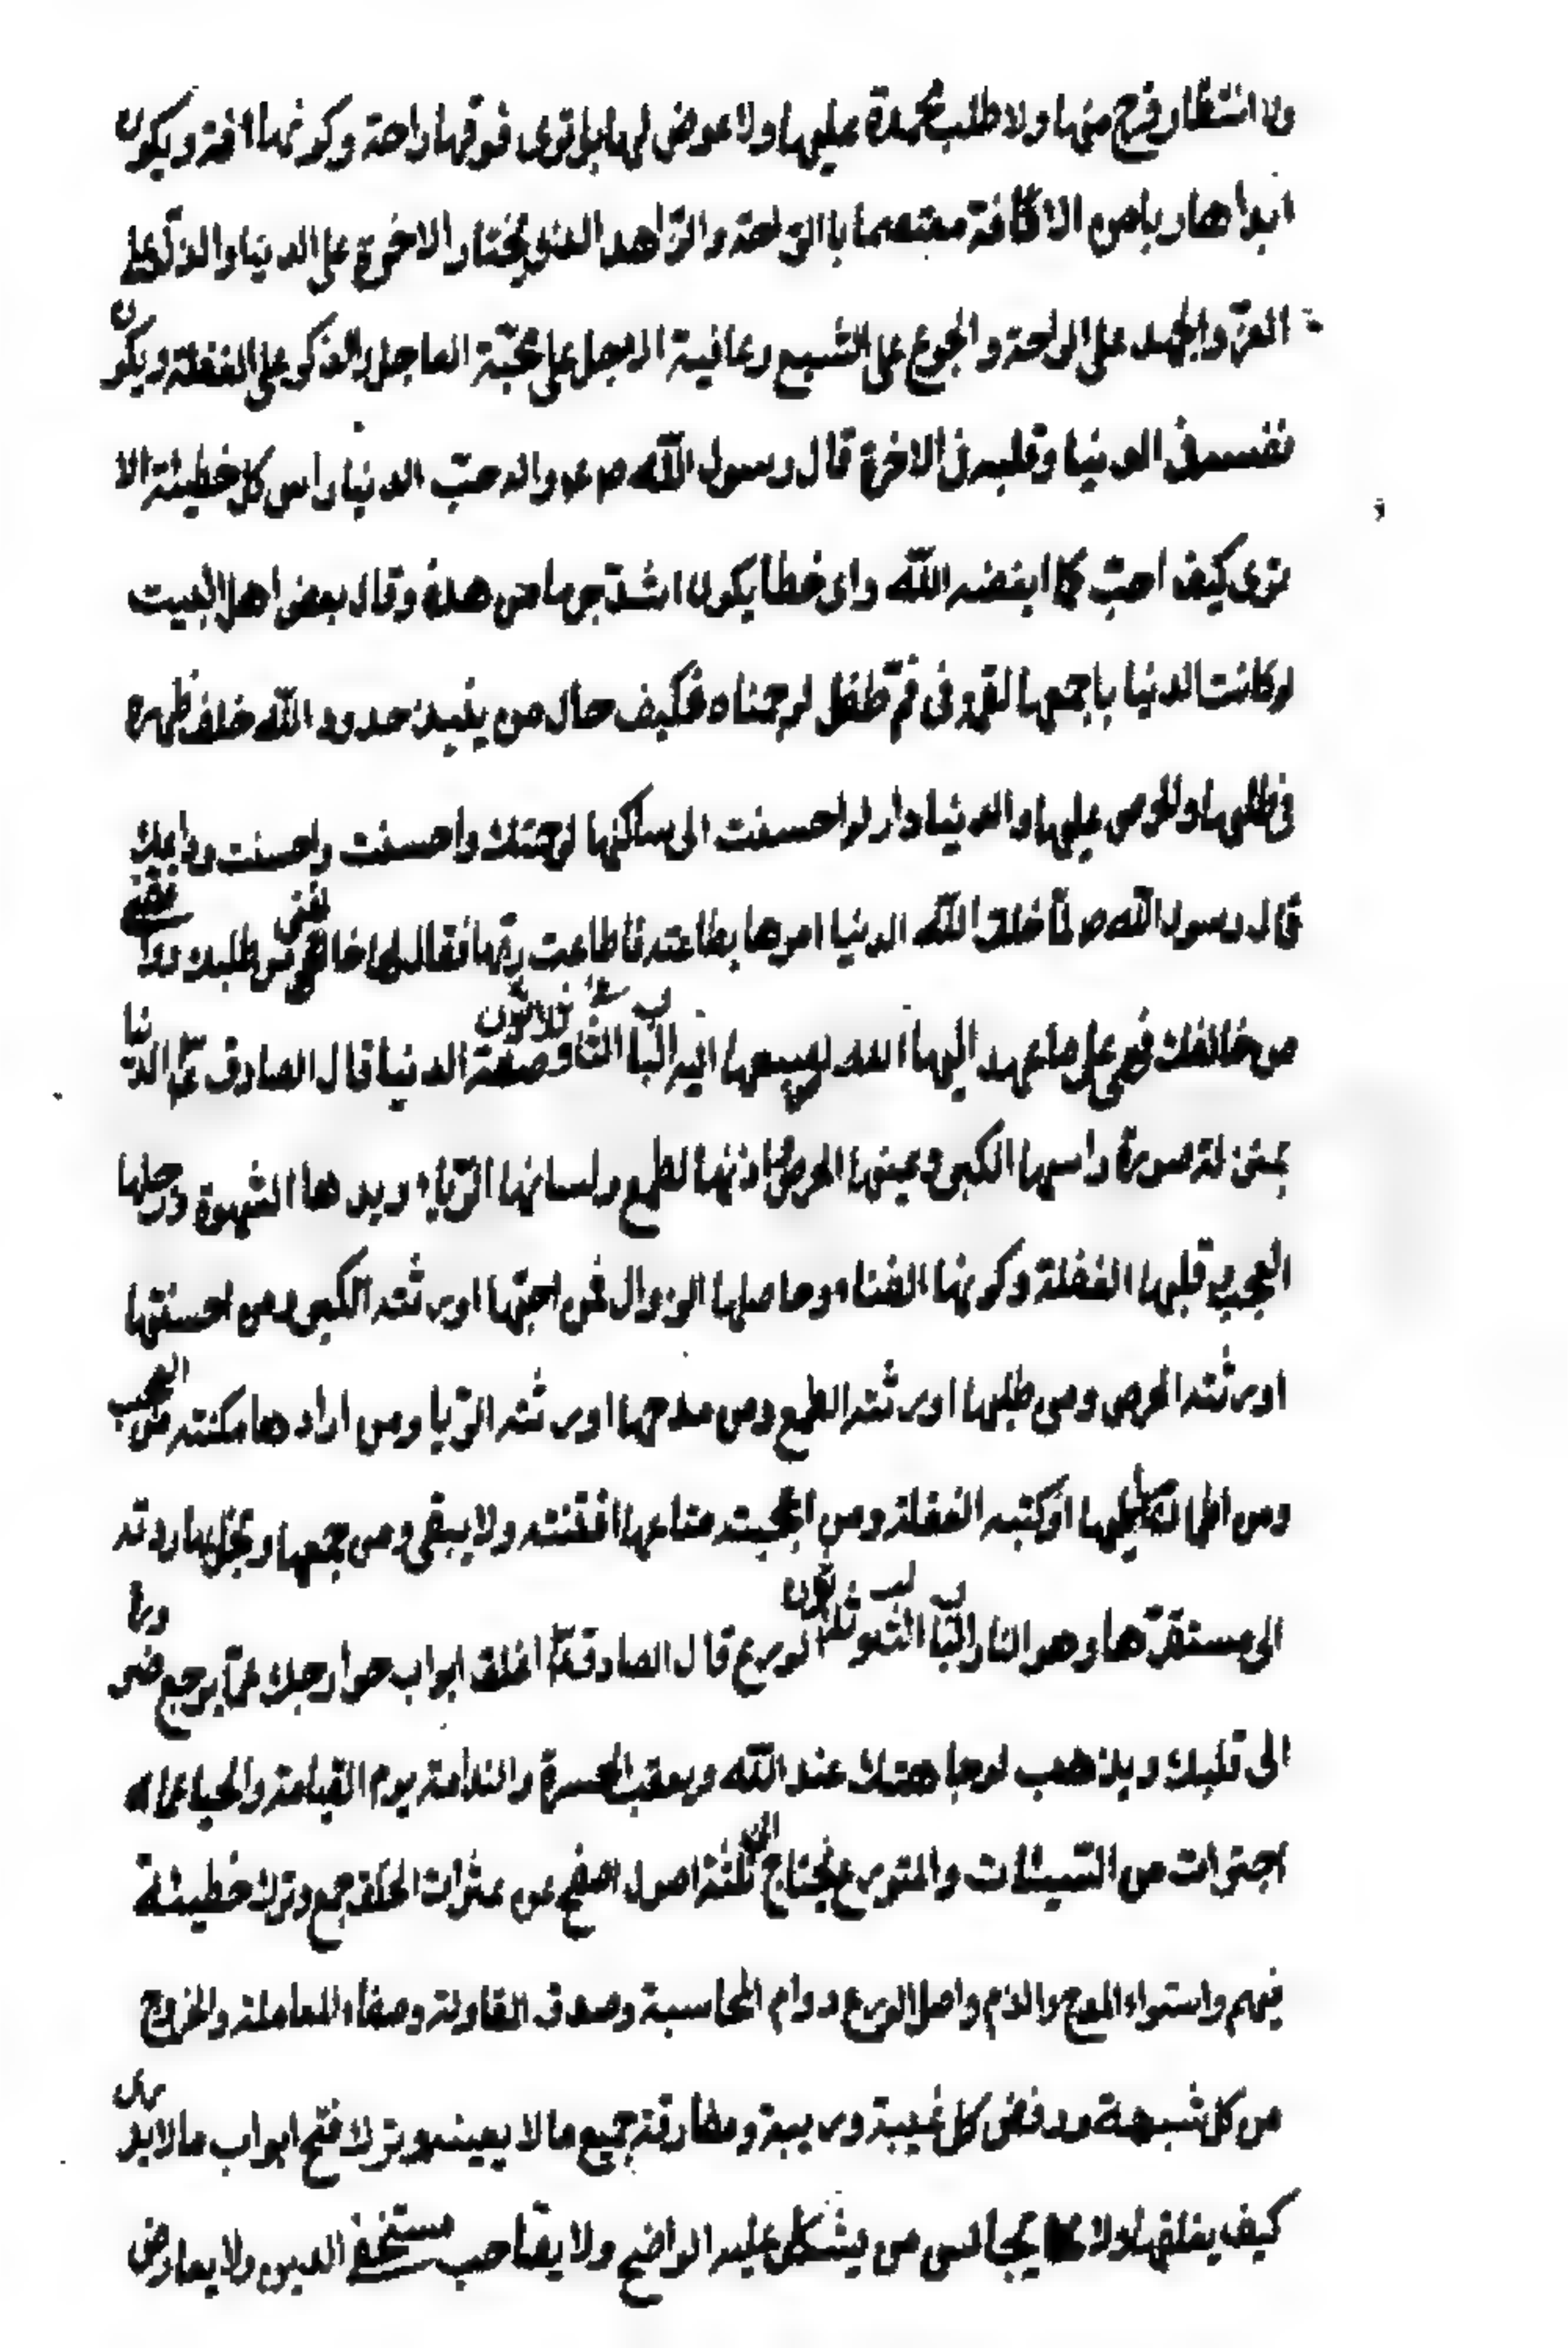 ولا انتظار فرح منها ولا طلب محمدة عليها ولا عوض لها بل ترى فوقها راحة وكونها افة ويكون
ابدا هاربا من الافة معتصما بالراحة والزاهد الذى يختار الاخرة على الدنيا والذل على
العز والجهد على الراحة والجوع على الشبع وعافية الاجل على محبة العاجل والذكر على الغفلة ويكون
نفسه فى الدنيا وقلبه فى الاخرة قال رسول الله ص ع واله حب الدنيا راس كل خطيئة الا
ترى كيف احب ما ابغضه الله واى خطا يكون اشد جرما من هذه وقال بعض اهل البيت
لو كانت الدنيا باجمعها لقمة فى فم طفل لرحمناه فكيف حال من ينبذ حدود الله خلف ظهره
فى طلبها والحرص عليها والدنيا دار لو احسنت الى ساكنها لرحمتك واحسنت واحسنت وداعك
قال رسول الله ص لما خلق الله الدنيا امرها بطاعته فاطاعت ربها فقال لها خالفى من طلبك
من خالفك فهى على ما عهد اليها الله الباب الثا وثلاثون صفة الدنيا قال الصادق ع الدنيا
بمنزلة صورة راسها الكبر وعينها الحرص واذنها الطمع ولسانها الرياء ويدها الشهوة ورجلها
العجب قلبها الغفلة وكونها الفناء وحاصلها الزوال فمن احبها اورثته الكبر ومن احسنتها
اورثته الحرص ومن طلبها اورثته الطمع ومن مدحها اورثته الريا ومن ارادها مكنته من العجب
ومن اطمان اليها اركبته الغفلة ومن اعجبته متاعها افتنته ولا يبقى ومن جمعها وبخل بها ردته
الى مستقرها وهو النار الباب وثلثون الورع قال الصادق ع اغلق ابواب جوارحك عما يرجع ضره
الى قلبك ويذهب لوجاهتك عند الله ويعقب الحسرة والندامة يوم القيامة والحيا عما
اجترات من السيئات والمتورع يحتاج الى ثلثة اصول الصفح عن عثرات الخلق جمع وترك خطيئة
فيهم واستواء المدح والذم واصل الورع دوام المحاسبة وصدق المقاولة وصفاء المعاملة والخروج
من كل شبهة ورفض كل غيبة وريبة ومفارقة جميع ما لا يعنيه وترك فتح ابواب ما لا يدرى
كيف يغلقها ولا يجالس من يشكل عليه الواضح ولا يصاحب مستخف الدين ولا يعارض